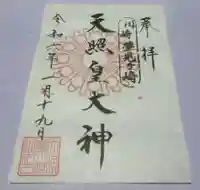 奉拝
川崎夢見ヶ崎
天照皇大神
令和六年一月十九日